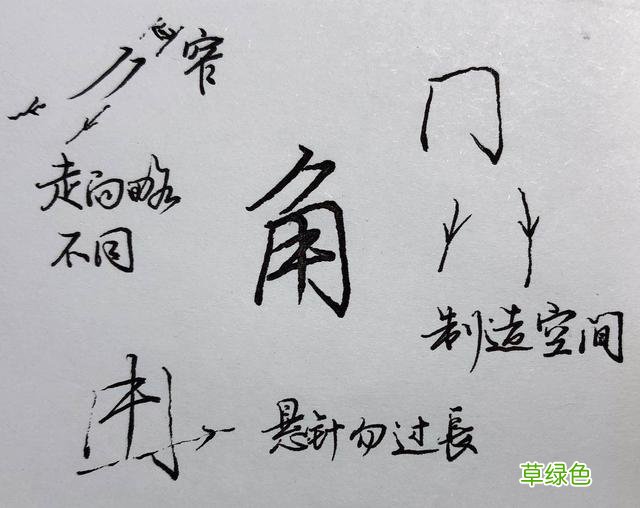 窄
走向略
不同
角
制造空间
悬针勿过長
草绿色